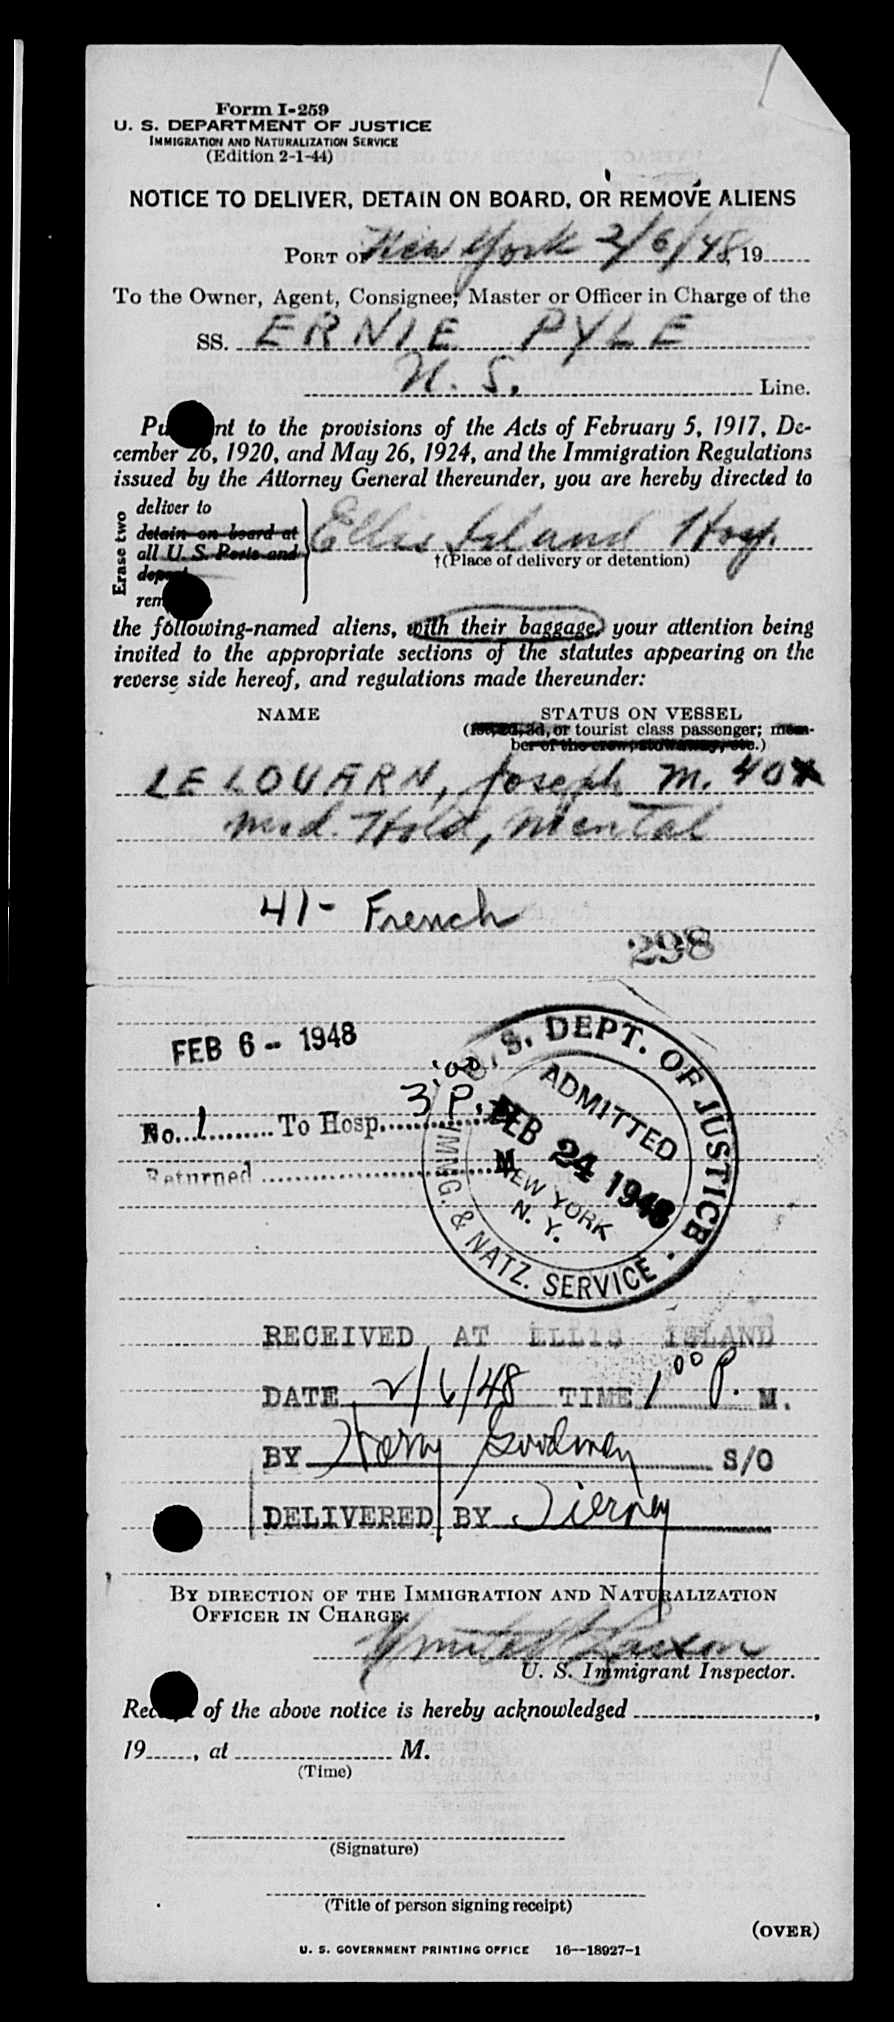 Form I-259
U. S. DEPARTMENT OF JUSTICE
IMMIGRATION AND NATURALIZATION SERVICE
(Edition 2-1-44)
NOTICE TO DELIVER, DETAIN ON BOARD, OR REMOVE ALIENS
PORT OF New York 2/6/48, 19
To the Owner, Agent, Consignee, Master or Officer in Charge of the
SS. ERNIE PYLE
U. S. Line.
Pu nt to the provisions of the Acts of February 5, 1917, De-
cember 26, 1920, and May 26, 1924, and the Immigration Regulations
issued by the Attorney General thereunder, you are hereby directed to
Erase two
deliver to
detain on board at
all U. S. Ports and
depart
rem
Ellis Island Hosp.
†(Place of delivery or detention)
the following-named aliens, with their baggage, your attention being
invited to the appropriate sections of the statutes appearing on the
reverse side hereof, and regulations made thereunder:
NAME STATUS ON VESSEL
(1st, 2d, 3d, or tourist class passenger; mem-
ber of the crew, stowaway, etc.)
LE LOUARN, Joseph M. 40
Med. Hold, Mental
41- French
298
FEB 6- 1948
No. 1 To Hosp. 3:00 P. M
Returned M
U. S. DEPT. OF JUSTICE
ADMITTED
FEB 24 1948
NEW YORK
N. Y.
IMMG. & NATZ. SERVICE
RECEIVED AT ELLIS ISLAND
DATE 2/6/48 TIME 1 00 P. M.
BY Harry Goodman S/O
DELIVERED BY Tierney
BY DIRECTION OF THE IMMIGRATION AND NATURALIZATION
OFFICER IN CHARGE:
U. S. Immigrant Inspector.
Rec of the above notice is hereby acknowledged ,
19 , at M.
(Time)
(Signature)
(Title of person signing receipt)
(OVER)
U. S. GOVERNMENT PRINTING OFFICE 16—18927-1